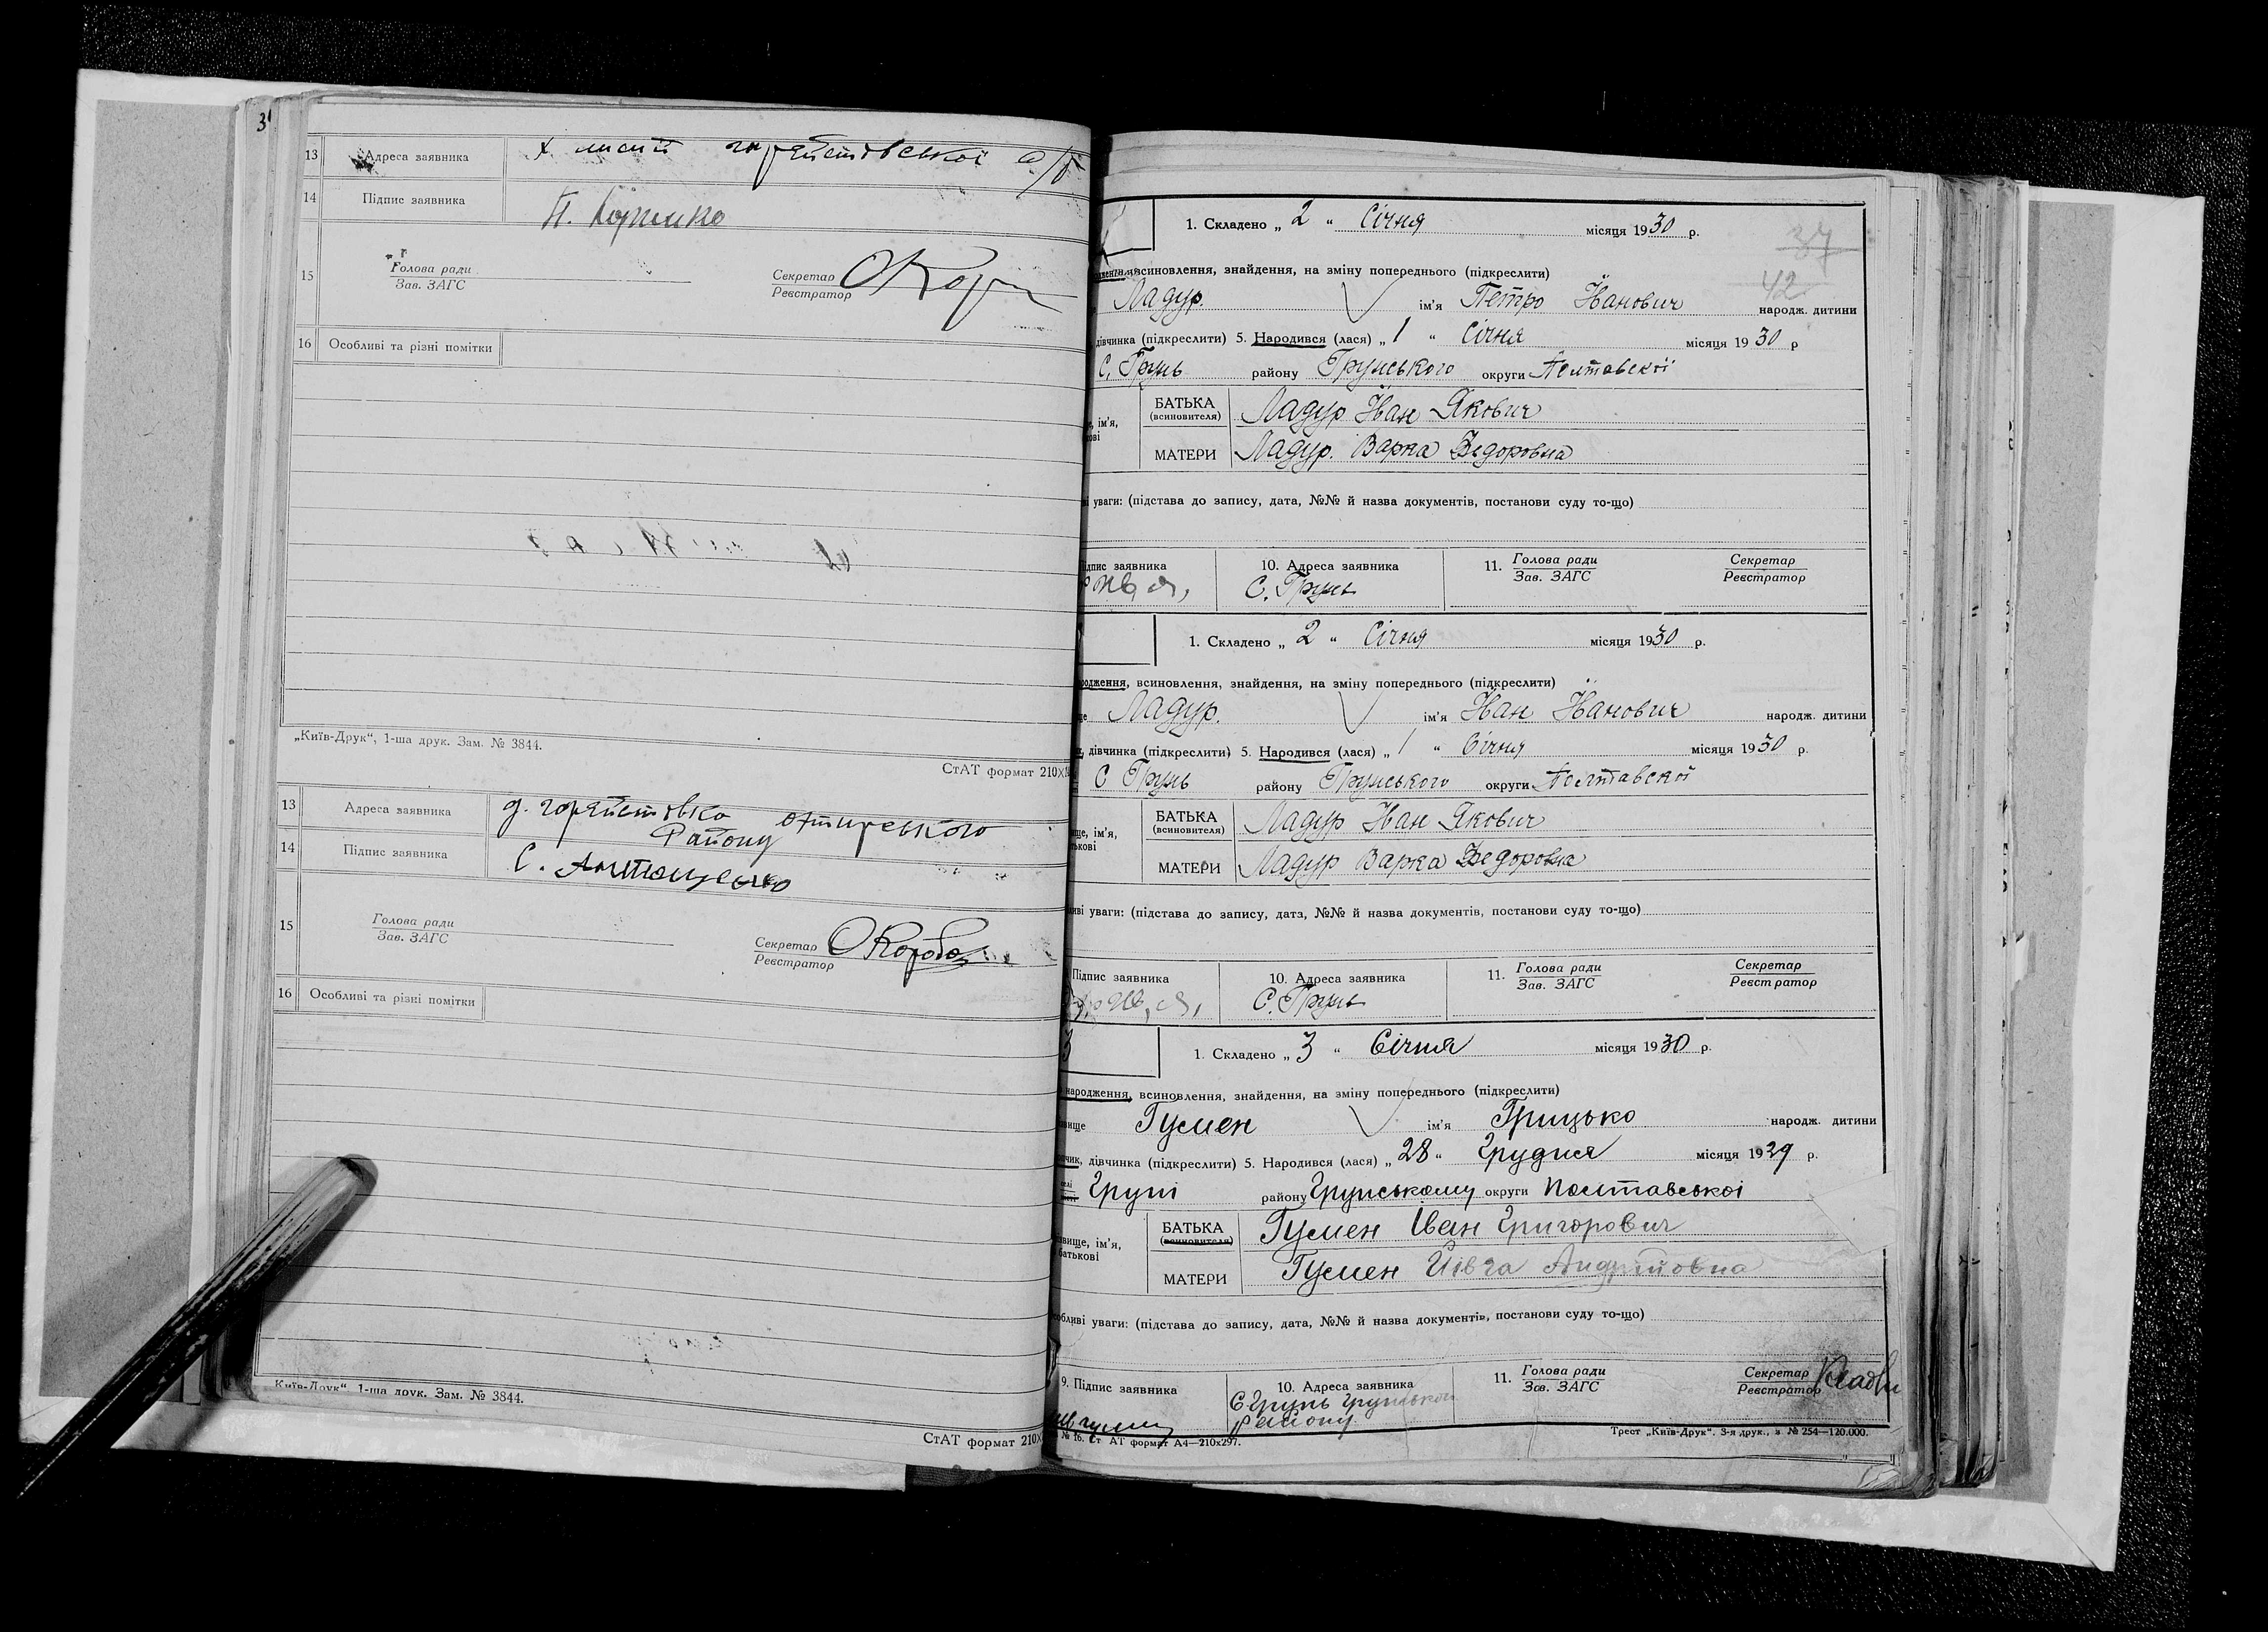 3
13 Адреса заявника х
14 Підпис заявника П.
15 Голова ради Зав. ЗАГС Секретар Реєстратор
16 Особливі та різні помітки
„Київ-Друк“, 1-ша друк. Зам. № 3844.
СтАТ формат 210×
13 Адреса заявника
Району
14 Підпис заявника С. Антощенко
15 Голова ради Зав. ЗАГС Секретар Реєстратор
16 Особливі та різні помітки
Київ-Друк“, 1-ша друк. Зам. № 3844.
СтАТ формат 210×
1. Складено „ 2 “ Січня місяця 1930 р.
37
42
всиновлення, знайдення, на зміну попереднього (підкреслити)
Ладур. ім'я Петро Їванович народж. дитини
дівчинка (підкреслити) 5. Народився (лася) „ 1 “ Січня місяця 1930 р
С. Грунь району Грунського округи Полтавскої
БАТЬКА (всиновителя) Ладур Їван Якович
ім'я,
МАТЕРИ Ладур. Варка Федоровна
уваги: (підстава до запису, дата, №№ й назва документів, постанови суду то-що)
Підпис заявника 10. Адреса заявника 11. Голова ради Зав. ЗАГС Секретар Реєстратор
С. Грунь
1. Складено „ 2 “ Січня місяця 1930 р.
родження, всиновлення, знайдення, на зміну попереднього (підкреслити)
Ладур. ім'я Їван Їванович народж. дитини
дівчинка (підкреслити) 5. Народився (лася) „ 1 “ Січня місяця 1930 р.
С Грунь району Грунського округи Полтавскої
БАТЬКА (всиновителя) Ладур Їван Якович
ім'я,
МАТЕРИ Ладур Варка Федоровна
уваги: (підстава до запису, дата, №№ й назва документів, постанови суду то-що)
Підпис заявника 10. Адреса заявника 11. Голова ради Зав. ЗАГС Секретар Реєстратор
С. Грунь
3
1. Складено „ 3 “ Січня місяця 1930 р.
народження, всиновлення, знайдення, на зміну попереднього (підкреслити)
Гусмен ім'я Грицько народж. дитини
дівчинка (підкреслити) 5. Народився (лася) „ 28 “ Грудня місяця 1929 р.
Груні району Грунському округи Полтавської
БАТЬКА (всиновителя) Гусмен Іван Григорович
ім'я,
батькові
МАТЕРИ Гусмен Ивга Андріївна
уваги: (підстава до запису, дата, №№ й назва документів, постанови суду то-що)
9. Підпис заявника 10. Адреса заявника 11. Голова ради Зав. ЗАГС Секретар Реєстратор
С Грунь Грунської
району
№ 16. Ст АТ формат А4—210х297. Трест „Київ-Друк“. 3-я друк., з № 254—120.000.